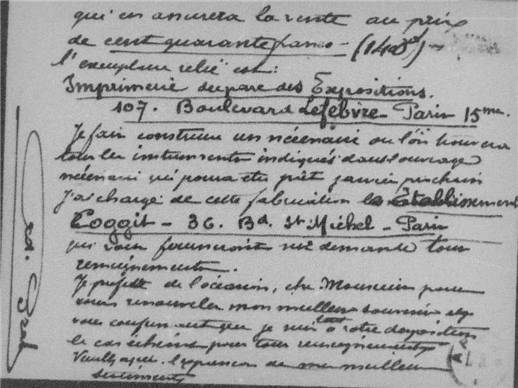 qui en assurera la vente au prix
de cent quarante francs - (140 frs) -
l'exemplaire relié est:
Imprimerie du parc des Expositions.
107. Boulevard Lefebvre - Paris 15me.
Je fais construire un nécessaire où l'on trouvera
tous les instruments indiqués dans l'ouvrage
nécessaire qui pourra être prêt janvier prochain
J'ai chargé de cette fabrication les Etablissements
Cogit - 36. Bd. St Michel - Paris
qui vous fourniront sur demande tous
renseignements.
Je profite de l'occasion, cher Monsieur pour
vous renouveler mon meilleur souvenir et
vous confirmer que je suis à votre disposition
le cas échéant pour tous renseignements
Veuillez agréer l'expression de mes meilleurs
sentiments